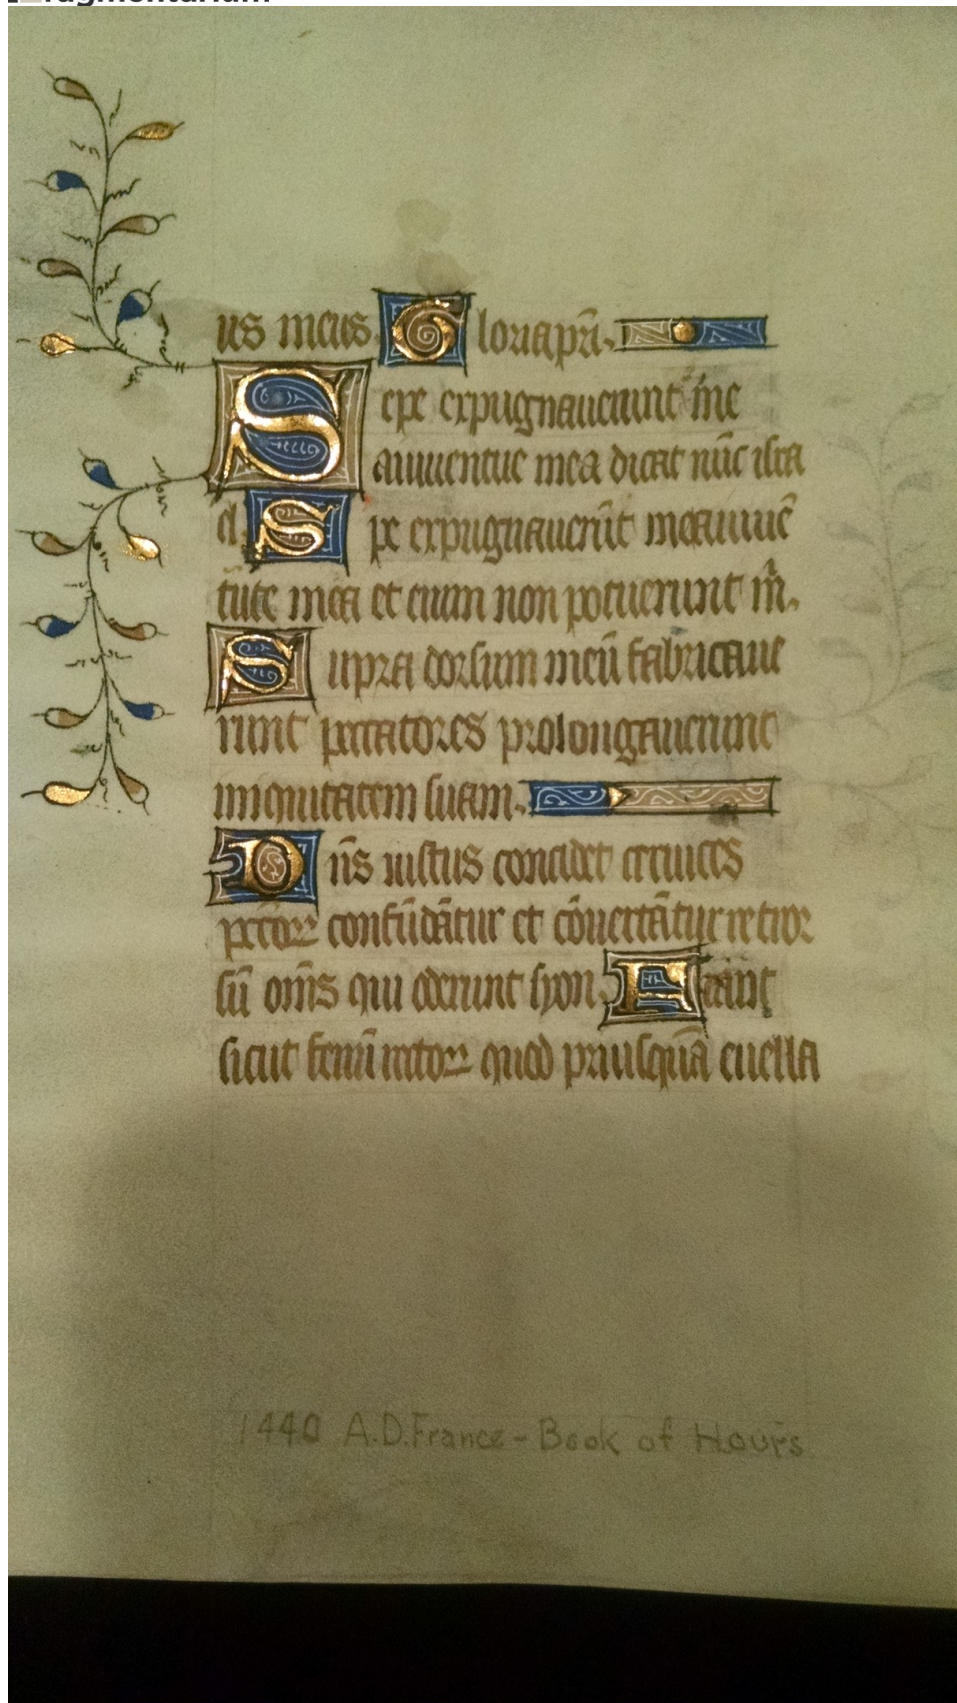 Fragmentarium
us meus. Gloria pr̄i.
Sepe expugnauerunt me
a iuuentute mea dicat nūc isra
el. Sepe expugnauerūt me a iuuē
tute mea et enim non potuerunt m̄.
Supra dorsum meū fabricaue
runt peccatores prolongauerunt
iniquitatem suam.
Dn̄s iustus concidet ceruices
pecc̄oꝝ confūdātur et cōuertātur retror
sū om̄s qui oderunt syon. Fiāt
sicut fenū tectoꝝ quod priusquā euella
1440 A.D. France - Book of Hours